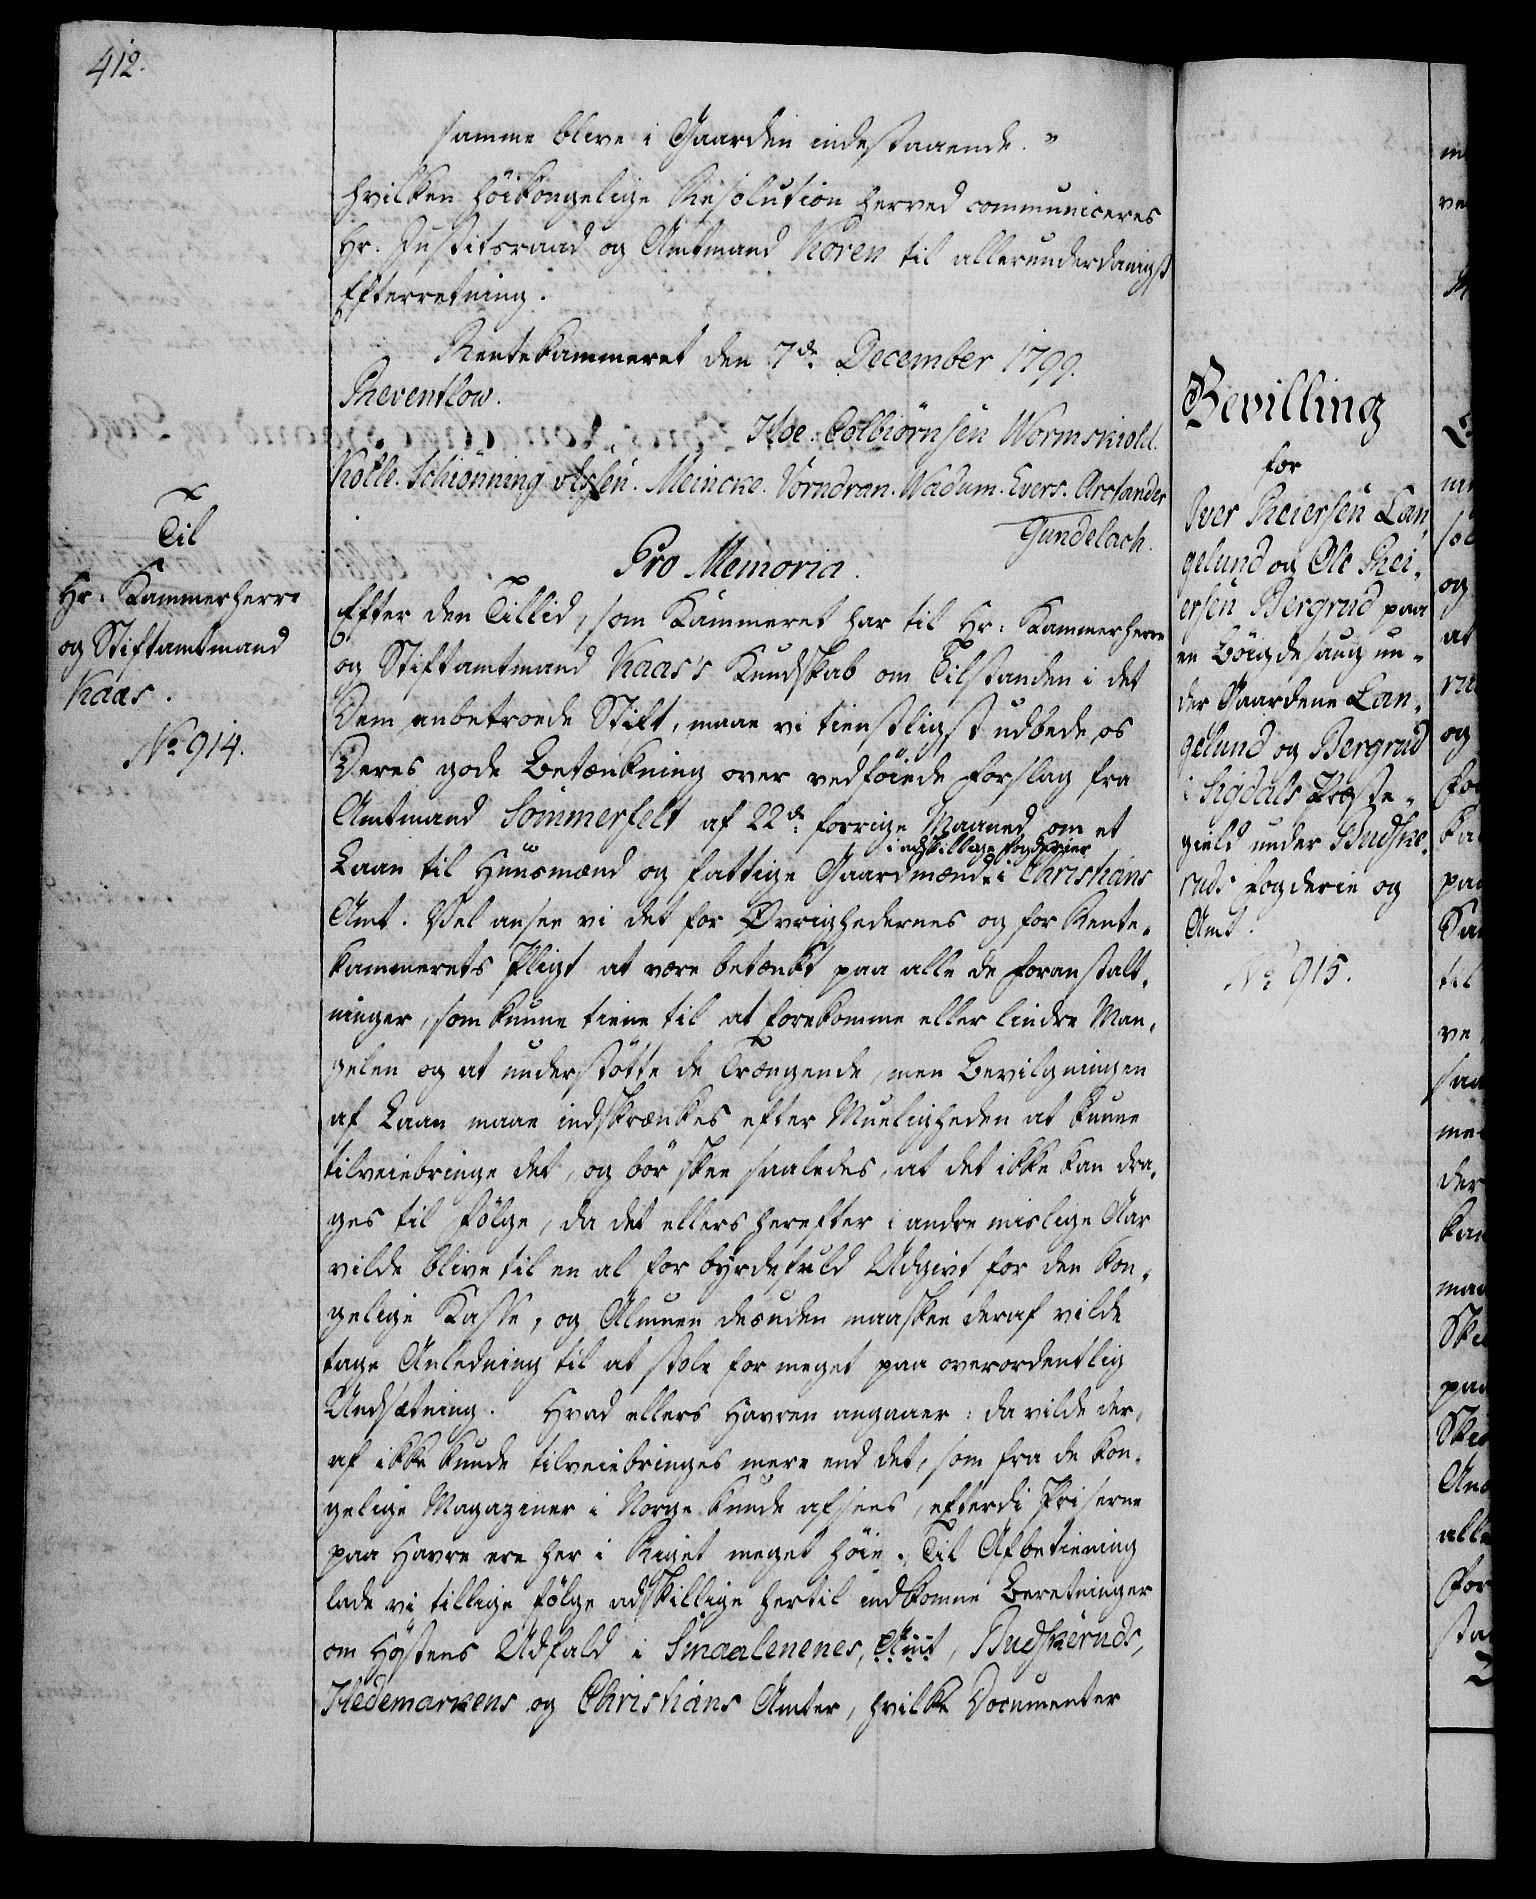 412.
samme blive i Gaarden indestaaende."
Hvilken höikongelige Resolution herved communiceres
Hr. Justitsraad og Amtmand Koren til allerunderdanigst
Efterretning.
Rentekammeret den 7de December 1799.
Reventlow.
Hoe. Colbiörnsen Wormskiold.
Kölle. Schiönning Meincke. Vorndran. Wadum. Evers. Arctander
Gundelach.
Til
Hr. Kammerherre
og Stiftamtmand
Kaas.
No 914.
Pro Memoria.
Efter den Tillid, som Kammeret har til Hr. Kammerherre
og Stiftamtmand Kaas's Kundskab om Tilstanden i det
Dem anbetroede Stift, maae vi tienstligst udbede os
Deres gode Betænkning over vedföiede Forslag fra
Amtmand Sommerfelt af 22de forrige Maaned om et
i adskillige Fogderier
Laan til Huusmænd og fattige Gaardmænd i Christians
Amt. Vel ansee vi det for Øvrighedernes og for Rente-
kammerets Pligt at være betænkt paa alle de Foranstalt-
ninger, som kunne tiene til at forekomme eller lindre Man-
gelen og at understötte de Trængende, men Bevilgningen
af Laan maae indskrænkes efter Mueligheden at kunne
tilveiebringe det, og bör skee saaledes, at det ikke kan dra-
ges til Fölge, da det ellers herefter i andre mislige Aar
vilde blive til en al for byrdefuld Udgivt for den Kon-
gelige Kasse, og Almuen desuden maaskee deraf vilde
tage Anledning til at stole for meget paa overordentlig
Undsætning. Hvad ellers Havren angaaer: da vilde der-
af ikke kunde tilveiebringes mere end det, som fra de Kon-
gelige Magaziner i Norge kunde afsees, efterdi Priserne
paa Havre ere her i Riget meget höie. Til Afbetiening
lade vi tillige fölge adskillige hertil indkomne Beretninger
om Höstens Udfald i Smaalenenes, Amt, Budskeruds,
Hedemarkens og Christians Amter, hvilke Documenter
Bevilling
for
Iver Reiersen Lan-
gelund og Ole Rei-
ersen Bergrud paa
en Böigdesaug un-
der Gaardene Lan-
gelund og Bergrud
i Sigdals Præste-
gield under Budske-
ruds Fogderie og
Amt.
No 915.